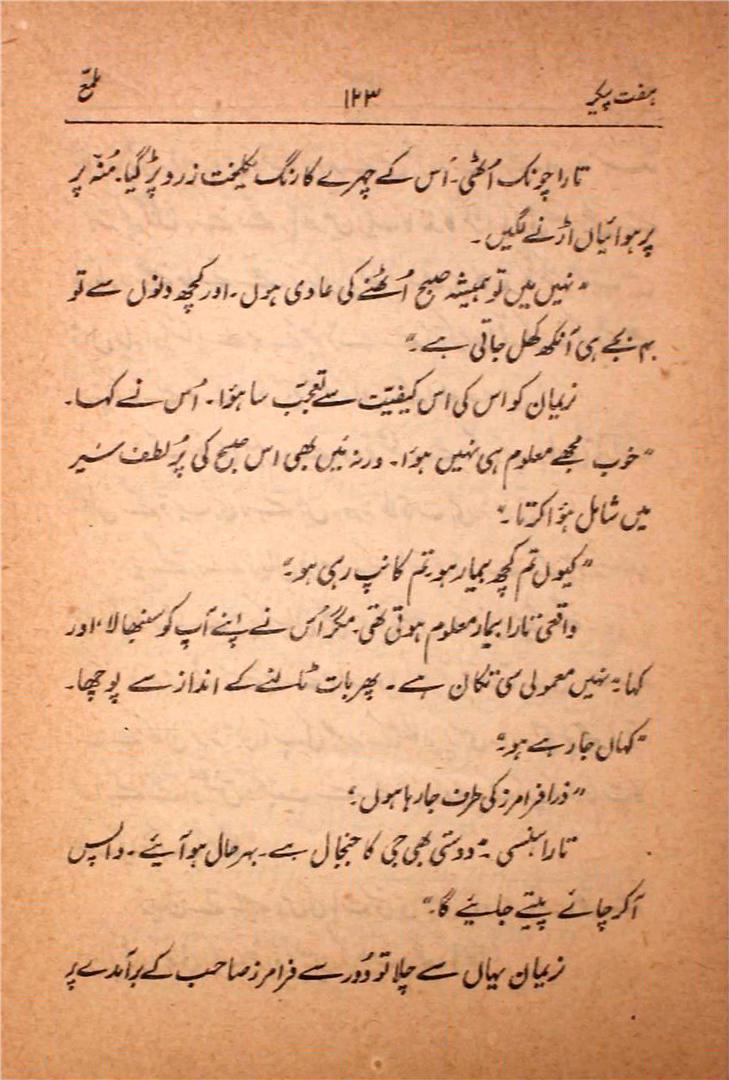 ہفت پیکر ۱۲۳ ملمع
تارا چونک اُٹھی۔ اُس کے چہرے کا رنگ یکلخت زرد پڑ گیا۔ مُنہ پر
پر ہوائیاں اڑنے لگیں۔
"نہیں میں تو ہمیشہ صبح اُٹھنے کی عادی ہوں۔ اور کچھ دنوں سے تو
۴ بجے ہی آنکھ کھل جاتی ہے۔"
نریمان کو اس کی اس کیفیّت سے تعجّب سا ہؤا۔ اُس نے کہا۔
"خوب مجھے معلوم ہی نہیں ہوٴا۔ ورنہ مَیں بھی اس صبح کی پُر لطف سَیر
میں شامل ہؤا کرتا۔"
"کیوں تم کچھ بیمار ہو۔ تم کانپ رہی ہو؟"
واقعی تارا بیمار معلوم ہوتی تھی۔ مگر اُس نے اپنے آپ کو سنبھالا، اور
کہا "نہیں معمولی سی تکان ہے۔ پھر بات ٹالنے کے انداز سے پوچھا۔
"کہاں جا رہے ہو؟"
"ذرا فرامرز کی طرف جا رہا ہوں؟
تارا ہنسی "دوستی بھی جی کا جنجال ہے۔ بہر حال ہو آیئے۔ واپس
آکر چائے پیتے جایئے گا۔"
نریمان یہاں سے چلا تو دُور سے فرامرز صاحب کے برآمدے پر